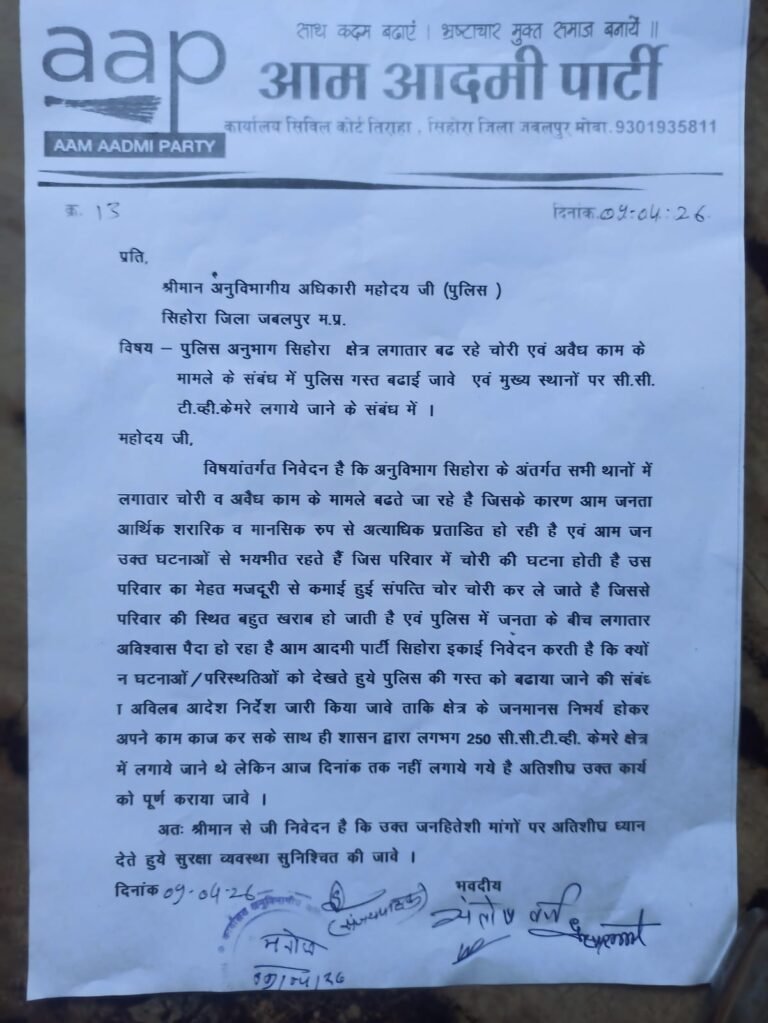 साथ कदम बढाएं । भ्रष्टाचार मुक्त समाज बनायें ॥
aap
आम आदमी पार्टी
AAM AADMI PARTY
कार्यालय सिविल कोर्ट तिराहा , सिहोरा जिला जबलपुर मोबा.9301935811
क्र. 13
दिनांक.09-04-26
प्रति,
श्रीमान अनुविभागीय अधिकारी महोदय जी (पुलिस )
सिहोरा जिला जबलपुर म.प्र.
विषय – पुलिस अनुभाग सिहोरा क्षेत्र लगातार बढ रहे चोरी एवं अवैध काम के
मामले के संबंध में पुलिस गस्त बढाई जावे एवं मुख्य स्थानों पर सी.सी.
टी.व्ही.केमरे लगाये जाने के संबंध में ।
महोदय जी,
विषयांतर्गत निवेदन है कि अनुविभाग सिहोरा के अंतर्गत सभी थानों में
लगातार चोरी व अवैध काम के मामले बढते जा रहे है जिसके कारण आम जनता
आर्थिक शरारिक व मानसिक रुप से अत्याधिक प्रताडित हो रही है एवं आम जन
उक्त घटनाओं से भयभीत रहते हैं जिस परिवार में चोरी की घटना होती है उस
परिवार का मेहत मजदूरी से कमाई हुई संपत्ति चोर चोरी कर ले जाते है जिससे
परिवार की स्थित बहुत खराब हो जाती है एवं पुलिस में जनता के बीच लगातार
अविश्वास पैदा हो रहा है आम आदमी पार्टी सिहोरा इकाई निवेदन करती है कि क्यों
न घटनाओं/परिस्थतिओं को देखते हुये पुलिस की गस्त को बढाया जाने की संबंध
ा अविलब आदेश निर्देश जारी किया जावे ताकि क्षेत्र के जनमानस निमर्य होकर
अपने काम काज कर सके साथ ही शासन द्वारा लगभग 250 सी.सी.टी.व्ही. केमरे क्षेत्र
में लगाये जाने थे लेकिन आज दिनांक तक नहीं लगाये गये है अतिशीघ्र उक्त कार्य
को पूर्ण कराया जावे ।
अतः श्रीमान से जी निवेदन है कि उक्त जनहितेशी मांगों पर अतिशीघ्र ध्यान
देते हुये सुरक्षा व्यवस्था सुनिश्चित की जावे ।
दिनांक 09-04-26
भवदीय
कार्यालय अनुविभागीय
(संजय पाठक)
संतोष वर्मा
मनोज
09/04/26